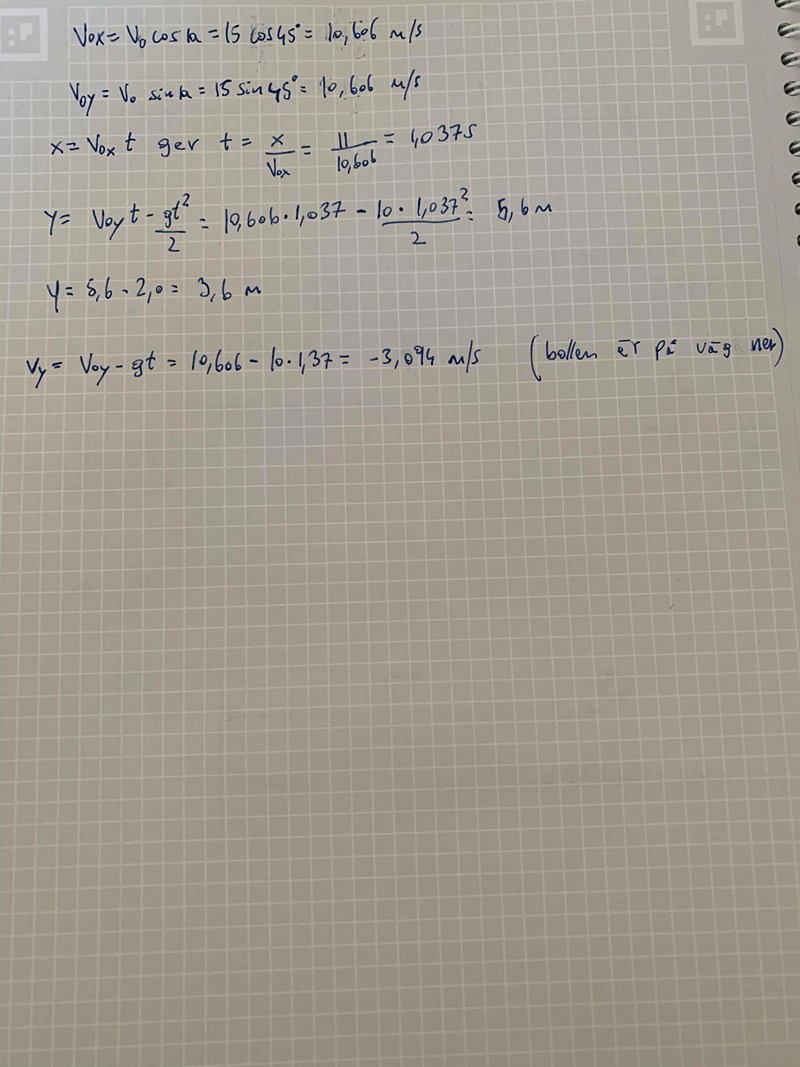 V0x = V0 cos α = 15 cos 45° = 10,606 m/s
V0y = V0 sin α = 15 sin 45° = 10,606 m/s
x = V0x t ger t = x/V0x = 11/10,606 = 1,037 s
y = V0y t - gt²/2 = 10,606 · 1,037 - 10 · 1,037²/2 = 5,6 m
y = 5,6 - 2,0 = 3,6 m
Vy = V0y - gt = 10,606 - 10 · 1,37 = -3,094 m/s (bollen är på väg ner)